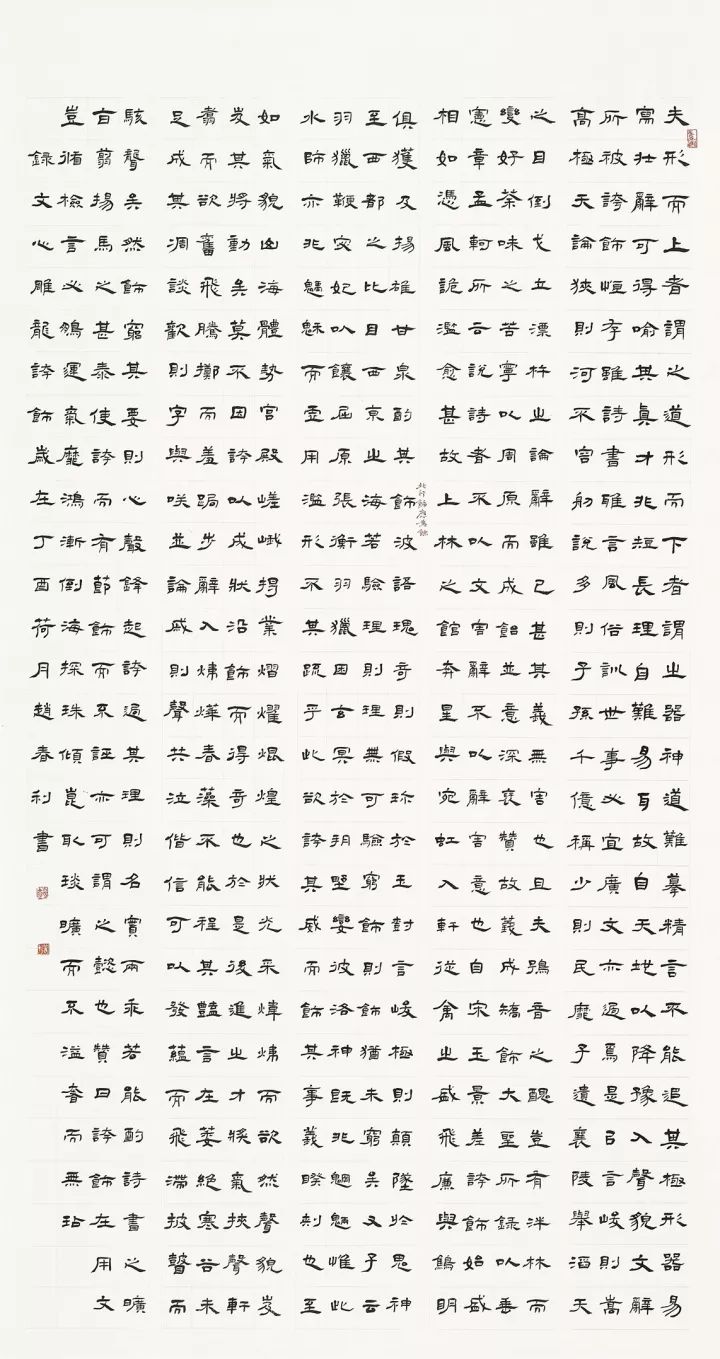 夫形而上者謂之道形而下者謂之器神道難摹精言不能追其極形器易
寫壯辭可得喻其真才非短長理自難易耳故自天地以降豫入聲貌文辭
所被誇飾恒存雖詩書雅言風俗訓世事必宜廣文亦過焉是以言峻則嵩
高極天論狹則河不容舠說多則子孫千億稱少則民靡孑遺襄陵舉滔天
之目倒戈立漂杵之論辭雖已甚其義無害也且夫鴞音之醜豈有泮林而
變好荼味之苦寧以周原而成飴並意深褒贊故義成矯飾大聖所錄以垂
憲章孟軻所云說詩者不以文害辭不以辭害意也自宋玉景差誇飾始盛
相如憑風詭濫愈甚故上林之館奔星與宛虹入軒從禽之盛飛廉與鷦明
俱獲及揚雄甘泉酌其飾波語瑰奇則假珍於玉樹言峻極則顛墜於鬼神
此行飾應為餘
至西都之比目西京之海若驗理則理無可驗窮飾則飾猶未窮矣又子云
羽獵鞭宓妃以饟屈原張衡羽獵困玄冥於朔野孌彼洛神既非魍魎惟此
水師亦非魑魅而虛用濫形不其疏乎此欲誇其威而飾其事義睽剌也至
如氣貌山海體勢宮殿嵯峨揭業熠燿焜煌之狀光采煒煒而欲然聲貌岌
岌其將動矣莫不因誇以成狀沿飾而得奇也於是後進之才獎氣挾聲軒
翥而欲奮飛騰擲而羞跼步辭入煒燁春藻不能程其豔言在萎絕寒谷未
足成其凋談歡則字與笑並論戚則聲共泣偕信可以發蘊而飛滯披瞽而
駭聾矣然飾窮其要則心聲鋒起誇過其理則名實兩乖若能酌詩書之曠
旨翦揚馬之甚泰使誇而有節飾而不誣亦可謂之懿也贊曰誇飾在用文
豈循檢言必鵬運氣靡鴻漸倒海探珠傾崑取琰曠而不溢奢而無玷
錄文心雕龍誇飾歲在丁酉荷月趙春利書